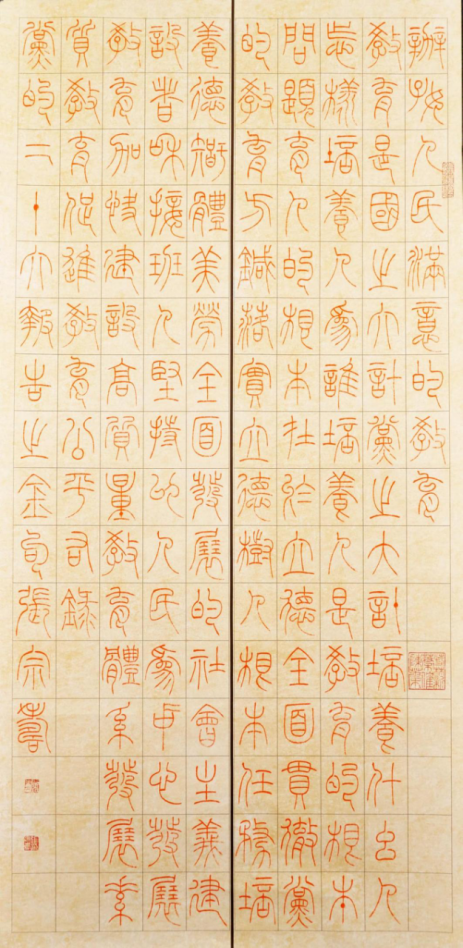 辦好人民滿意的教育
教育是國之大計黨之大計培養什么人
怎樣培養人為誰培養人是教育的根本
問題育人的根本在於立德全面貫徹黨
的教育方鍼落實立德樹人根本任務培
養德智體美勞全面發展的社會主義建
設者和接班人堅持以人民為中心發展
教育加快建設高質量教育體系發展素
質教育促進教育公平右錄
黨的二十大報告之金句張宗